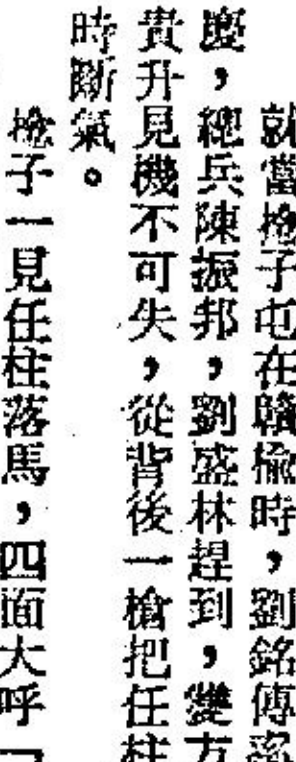 就當捻子屯在贛榆時，劉銘傳
慶，總兵陳振邦，劉盛林趕到，雙方
貴升見機不可失，從背後一槍把任柱
時斷氣。
捻子一見任柱落馬，四面大呼「